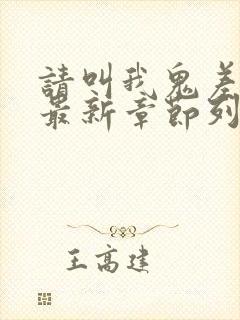 請叫我鬼差
最新章節列
王高建